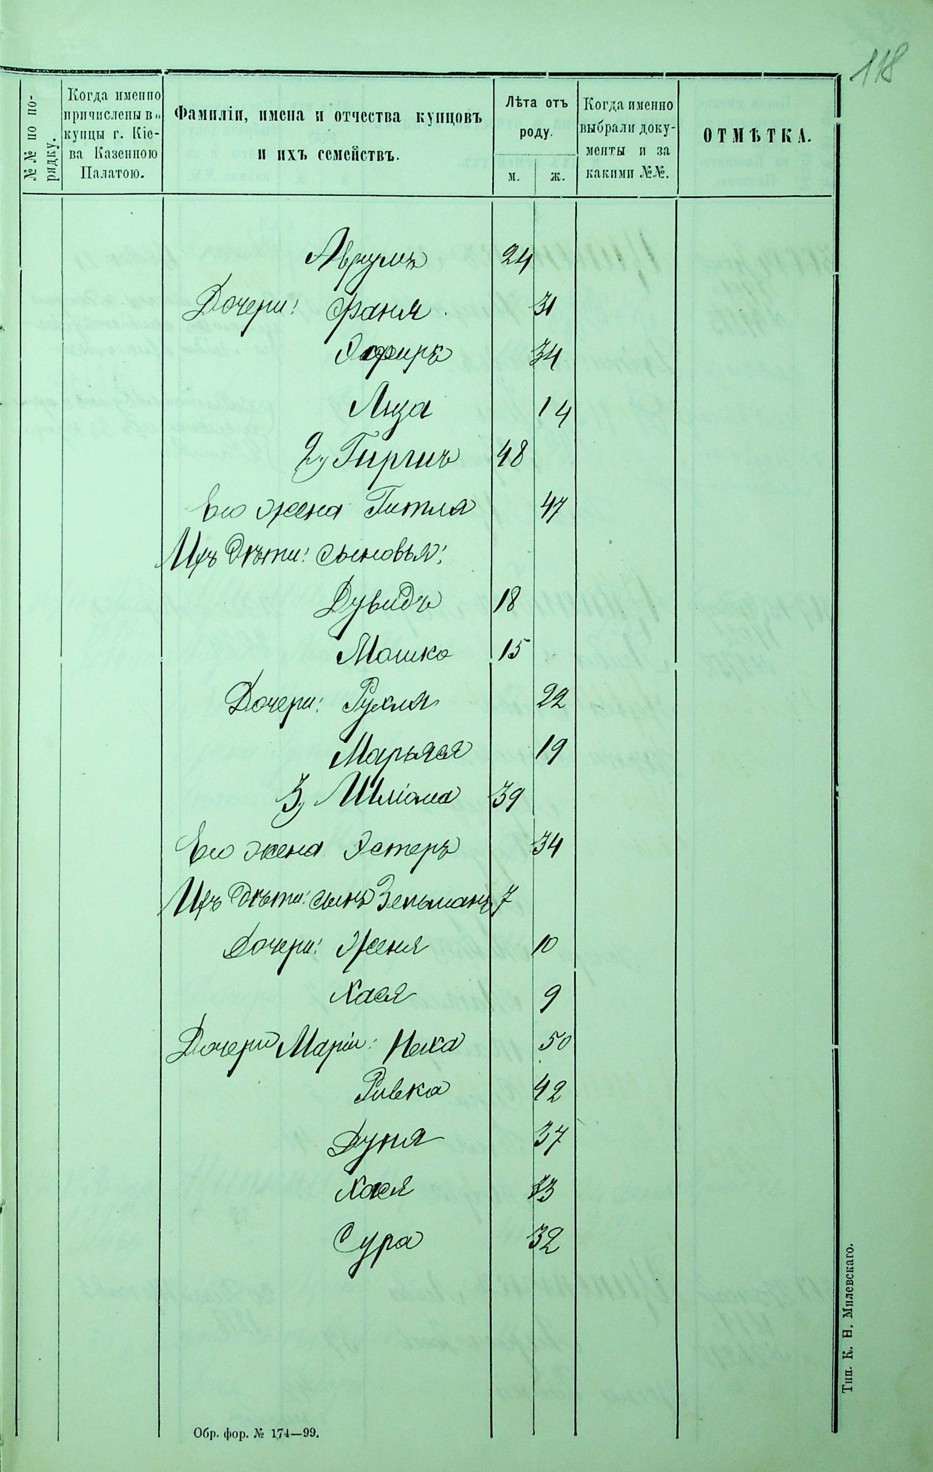 118
№№ по по-
рядку.
Когда именно
причислены въ
купцы г. Кіе-
ва Казенною
Палатою.
Фамиліи, имена и отчества купцовъ
и ихъ семействъ.
Лѣта отъ
роду.
м. ж.
Когда именно
выбрали доку-
менты и за
какими №№.
ОТМѢТКА.
Аврумъ 24
Дочери: Фаня 31
Эсфирь 34
Лиза 14
2) Гиршъ 48
Его жена Гитля 47
Ихъ дѣти: сыновья:
Дувидъ 18
Мошко 15
Дочери: Рухля 22
Марьяся 19
3) Шліома 39
Его жена Эстеръ 34
Ихъ дѣти: сынъ Зельманъ 7
Дочери: Женя 10
Хася 9
Дочери Маріи: Неха 50
Ривка 42
Дуня 37
Хася 33
Сура 32
Обр. фор. № 174—99.
Тип. К. Н. Милевскаго.